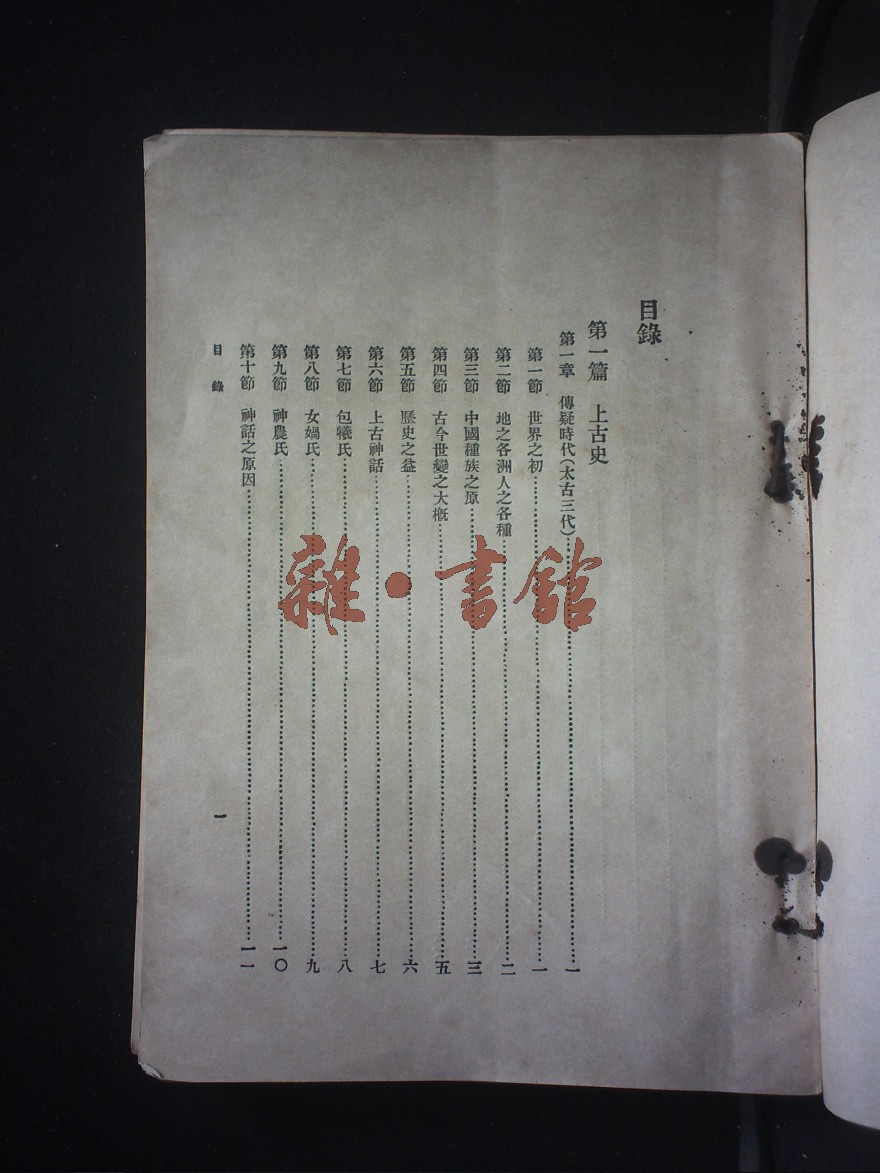 目錄
第一篇 上古史
第一章 傳疑時代(太古三代)……一
第一節 世界之初……一
第二節 地之各洲人之各種……二
第三節 中國種族之原……三
第四節 古今世變之大概……五
第五節 歷史之益……六
第六節 上古神話……七
第七節 包犧氏……八
第八節 女媧氏……九
第九節 神農氏……一〇
第十節 神話之原因……一一
目錄 一
雜·書館